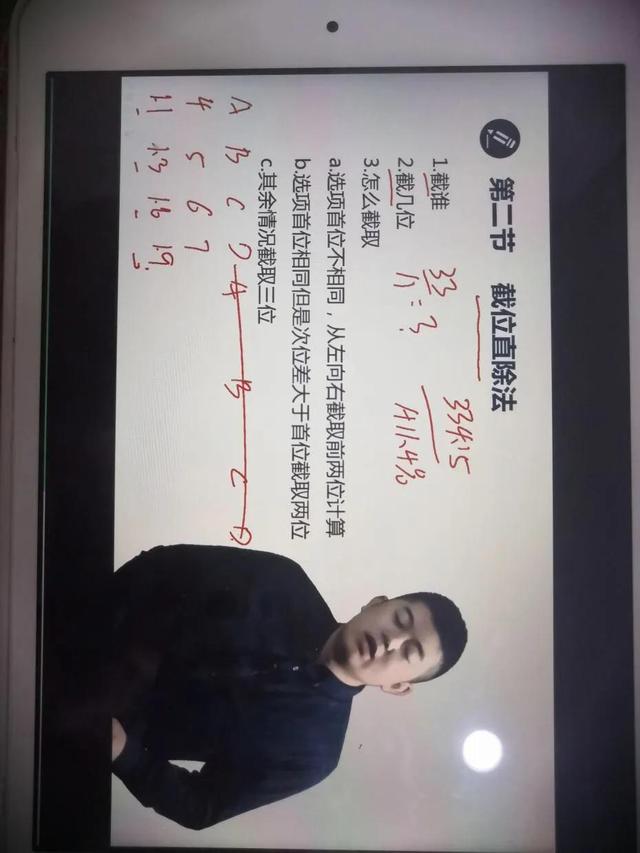 第二节 截位直除法
1.截谁
2.截几位
3.怎么截取
a.选项首位不相同，从左向右截取前两位计算
b.选项首位相同但是次位差大于首位截取两位
c.其余情况截取三位
33
11 = ?
A B C D
4 5 6 7
1.1 1.3 1.6 1.9
A B C D